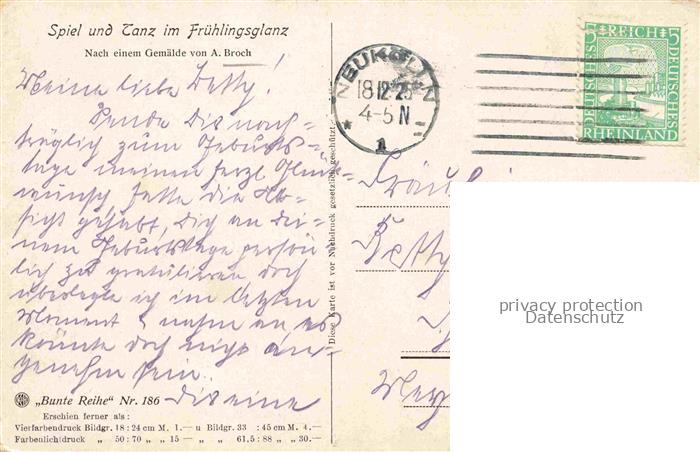 Spiel und Tanz im Frühlingsglanz
Nach einem Gemälde von A. Broch
Meine liebe Betty!
Sende Dir nach=
träglich zum Geburts=
tage meinen herzl. Glück=
wunsch hatte die Ab=
sicht gehabt, Dich an Dei=
nem Geburtstage persön
lich zu gratulieren doch
überlegte ich im letzten
Moment & nahm an es
könnte doch nicht an=
genehm sein.
Dir eine
„Bunte Reihe" Nr. 186
Erschien ferner als:
Vierfarbendruck Bildgr. 18:24 cm M. 1.— u Bildgr. 33 :45 cm M. 4.—
Farbenlichtdruck „ 50:70 „ „ 15— „ „ 61,5:88 „ „ 30.—
Diese Karte ist vor Nachdruck gesetzlich geschützt
NEUKÖLLN
18.12.25
4-5 N
* 1
5 REICH 5
DEUTSCHES
DEUTSCHES
RHEINLAND
Fräul
Betty
privacy protection
Datenschutz